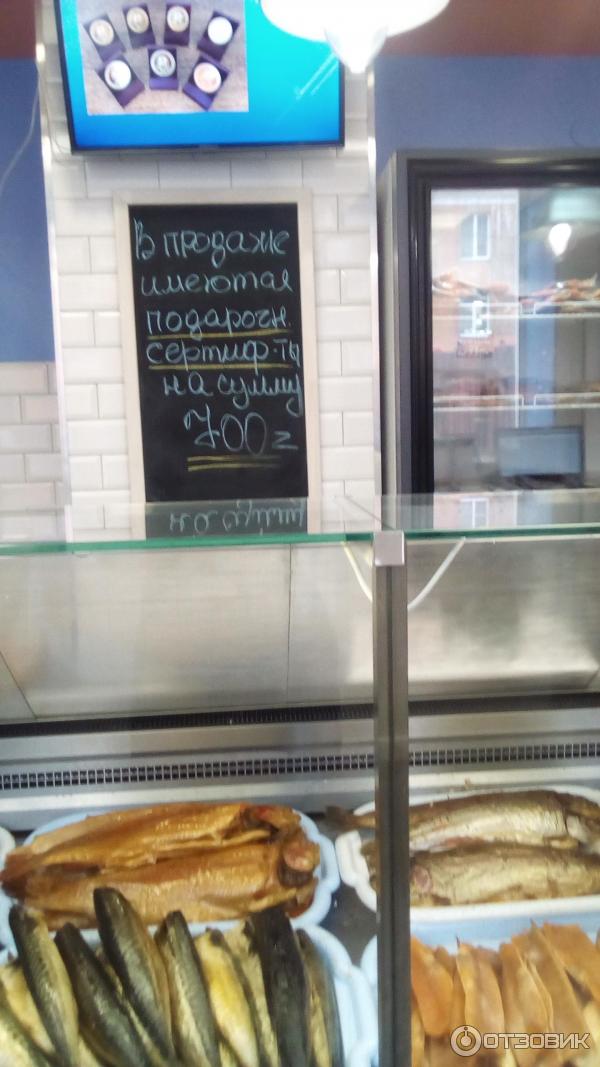 В продаже
имеются
подарочн.
сертиф-ты
на сумму
700=
ОТЗОВИК